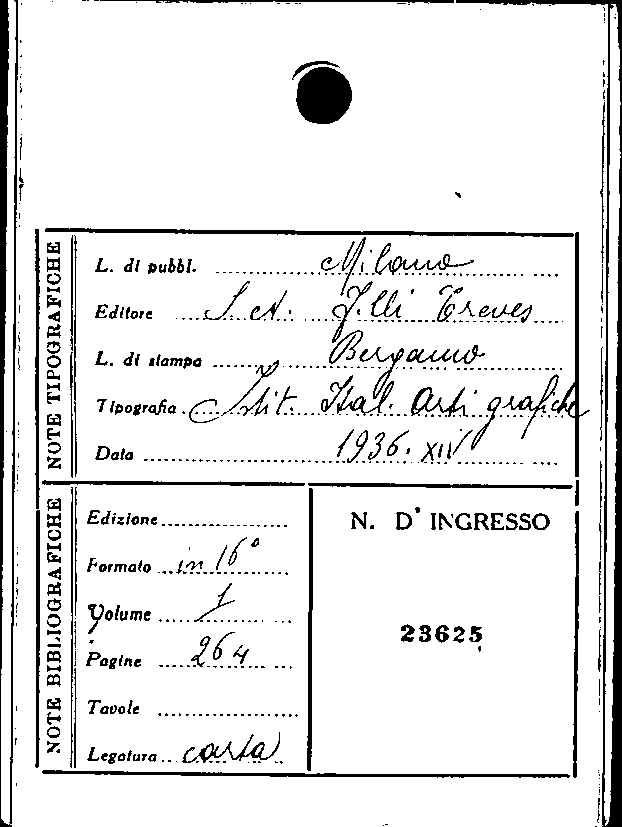 NOTE TIPOGRAFICHE
L. di pubbl. Milano
Editore S. A. F.lli Treves
L. di stampa Bergamo
Tipografia Istit. Ital. Arti grafiche
Data 1936. XIV
NOTE BIBLIOGRAFICHE
Edizione
Formato in 16°
Volume 1
Pagine 264
Tavole
Legatura carta
N. D' INGRESSO
23625